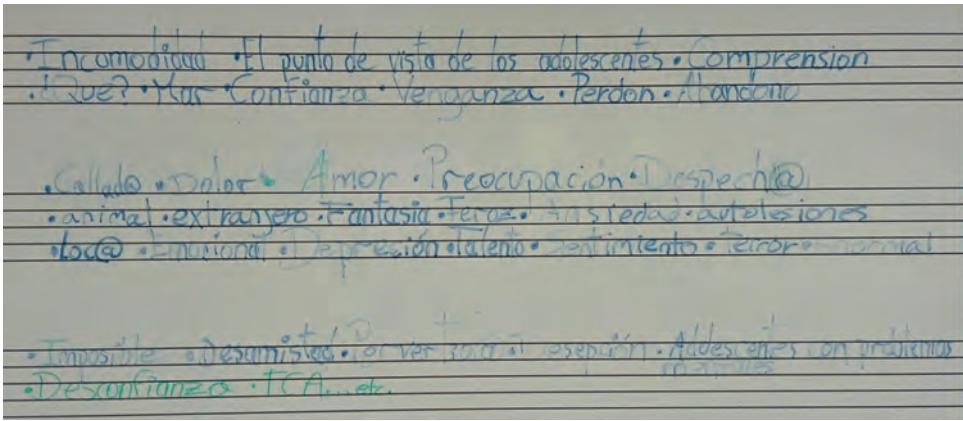 ·Incomodidad ·El punto de vista de los adolescentes·Comprension
·¿Que?·Mar·Confianza·Venganza·Perdon·Abandono
·Callad@·Dolor·Amor·Preocupación·Despech@
·animal·extranjero·Fantasia·Feroz·Ansiedad·autolesiones
·Loc@·Emocional·Depresión·Talento·Sentimiento·Terror·normal
·Imposible·Desamistad· ·Adolescentes con problemas
mentales
·Desconfianza·TCA...etc.